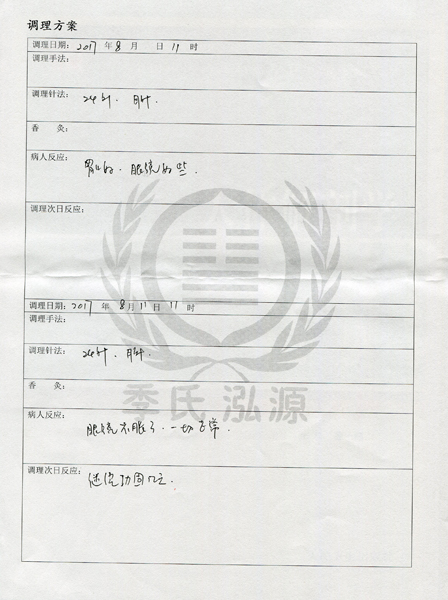 调理方案
调理日期：2017 年 8 月 日 11 时
调理手法：
调理针法： 24针．
香 灸：
病人反应： 胃
调理次日反应：
调理日期：2017 年 8月11日 11 时
调理手法：
调理针法： 24针．
香 灸：
季氏泓源
病人反应： 不胀了．一切正常．
调理次日反应： 继续巩固